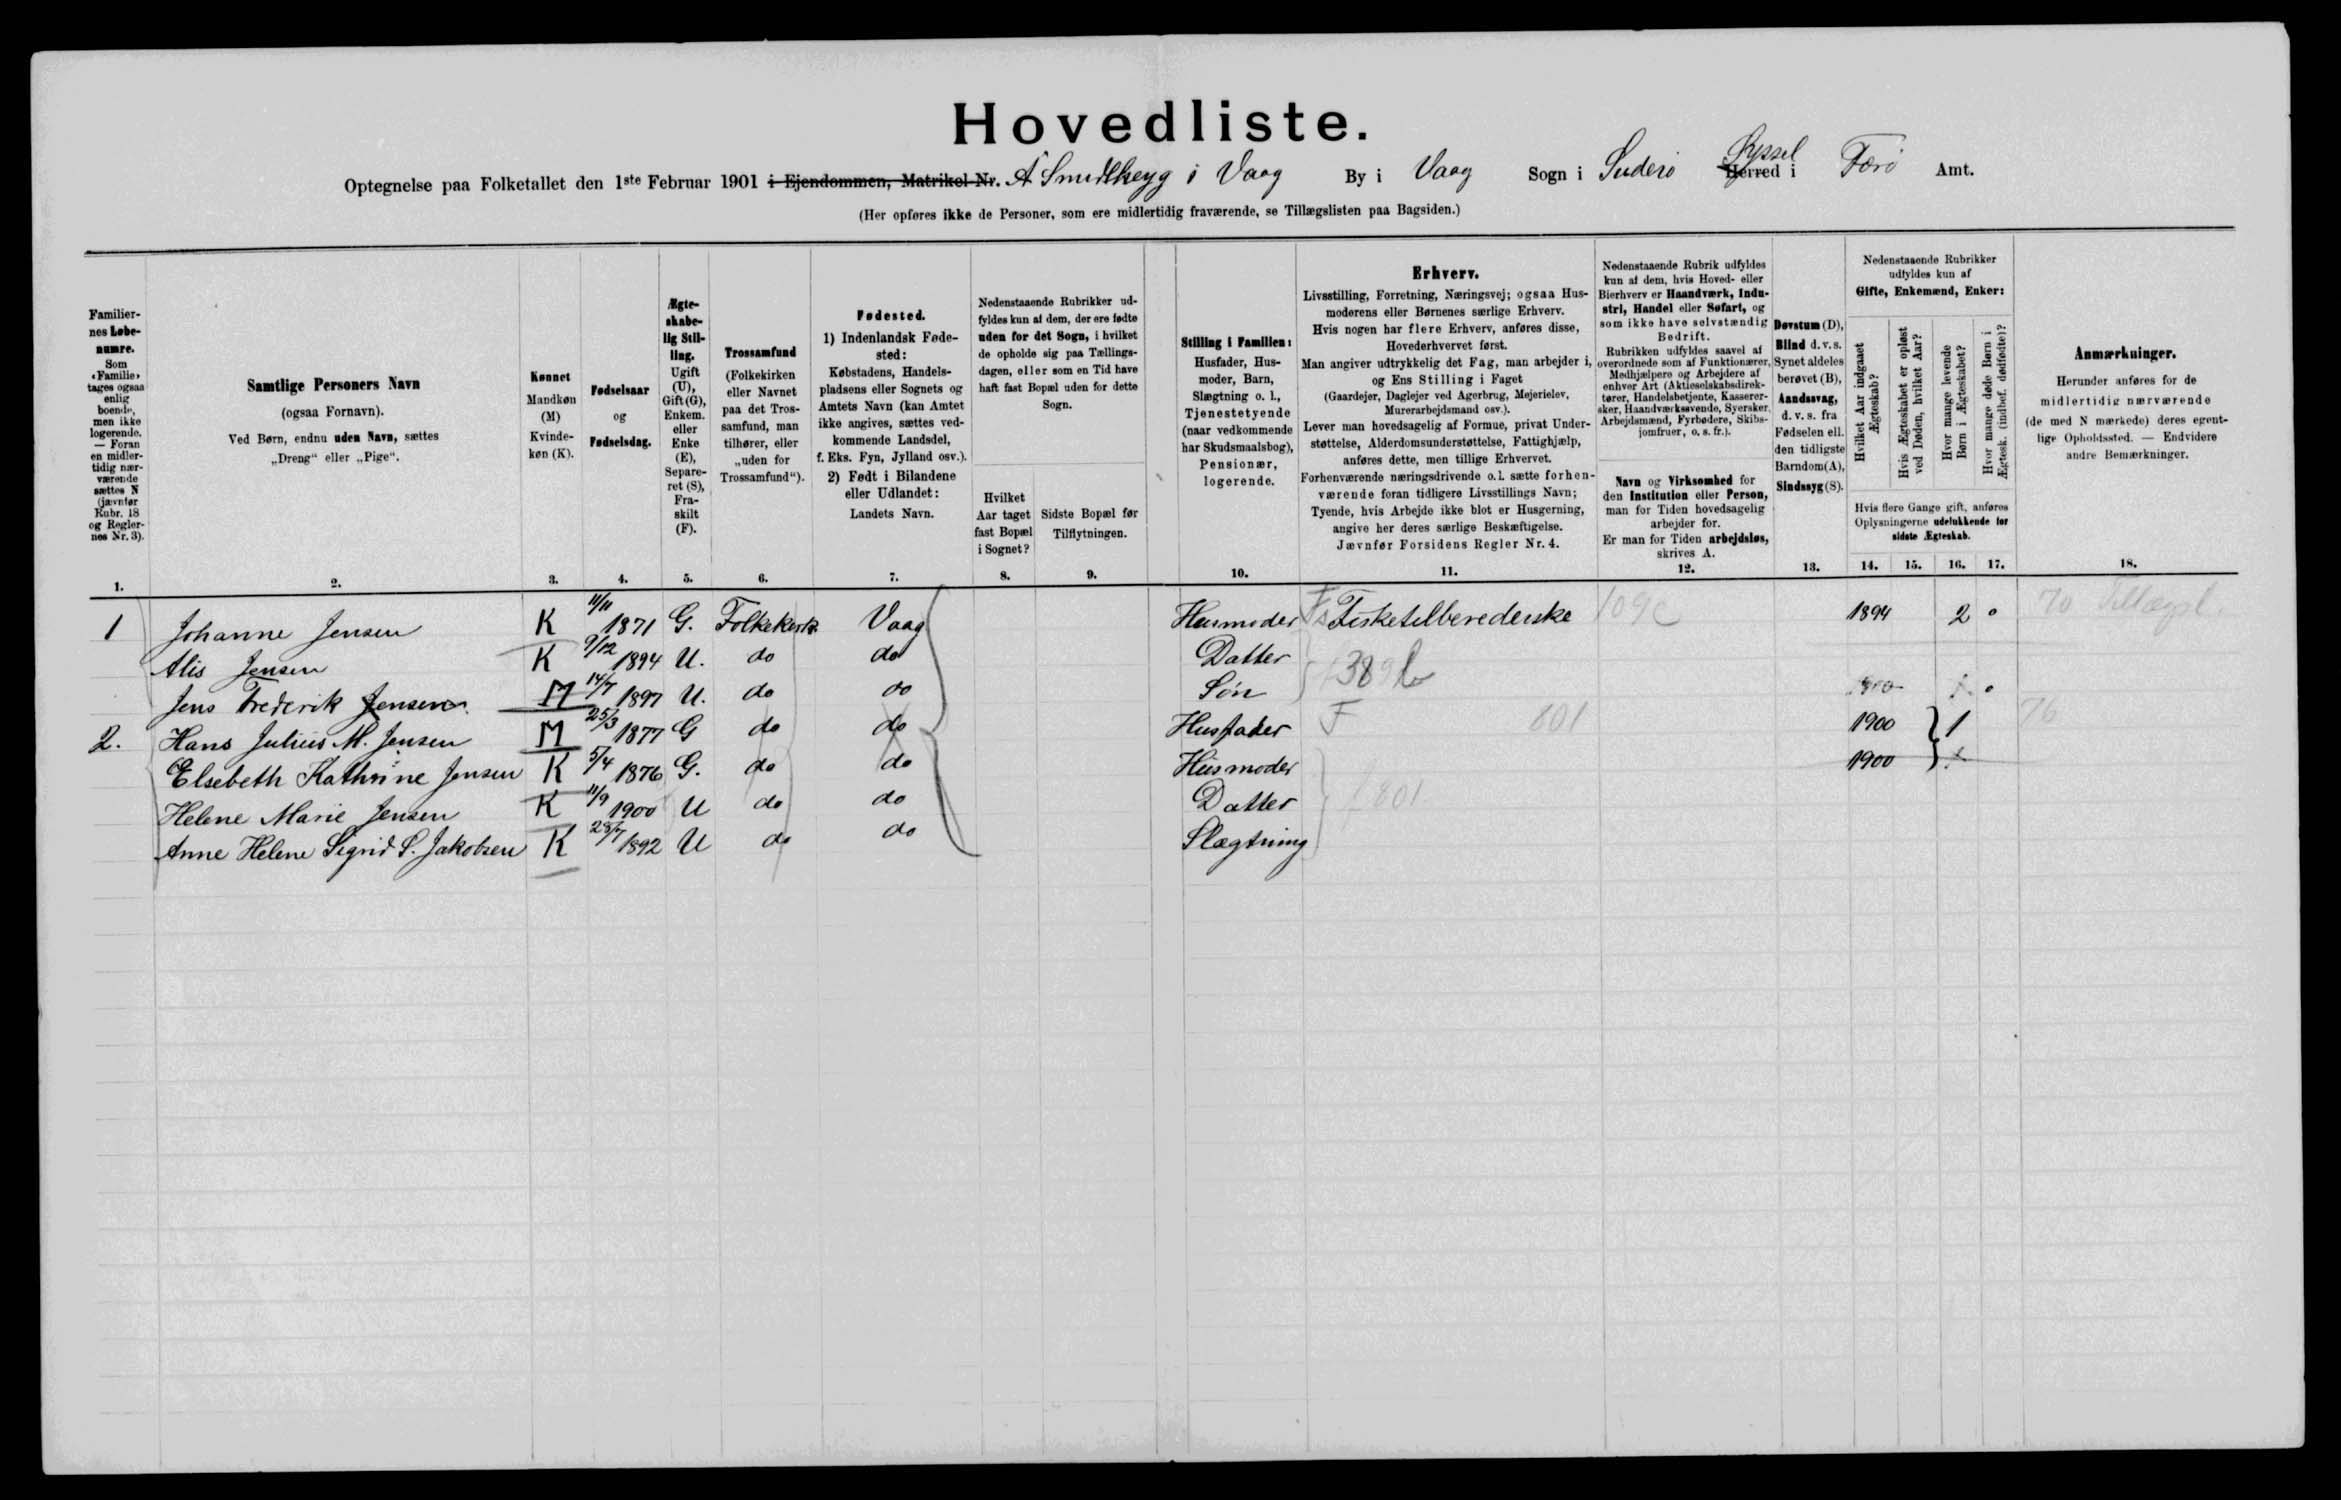 Hovedliste.
Optegnelse paa Folketallet den 1ste Februar 1901 i Ejendommen, Matrikel-Nr. Á Smidlheyg i Vaag By i Vaag Sogn i Suderö Herred Syssel i Færö Amt.
(Her opføres ikke de Personer, som ere midlertidig fraværende, se Tillægslisten paa Bagsiden.)
Familier-
nes Løbe-
numre.
Som
«Familie»
tages ogsaa
enlig
boende,
men ikke
logerende.
— Foran
en midler-
tidig nær-
værende
sættes N
(jævnfør
Rubr. 18
og Regler-
nes Nr. 3).
Samtlige Personers Navn
(ogsaa Fornavn).
Ved Børn, endnu uden Navn, sættes
„Dreng“ eller „Pige“.
Kønnet
Mandkøn
(M)
Kvinde-
køn (K).
Fødselsaar
og
Fødselsdag.
Ægte-
skabe-
lig Stil-
ling.
Ugift
(U),
Gift (G),
Enkem.
eller
Enke
(E),
Separe-
ret (S),
Fra-
skilt
(F).
Trossamfund
(Folkekirken
eller Navnet
paa det Tros-
samfund, man
tilhører, eller
„uden for
Trossamfund“).
Fødested.
1) Indenlandsk Føde-
sted:
Købstadens, Handels-
pladsens eller Sognets og
Amtets Navn (kan Amtet
ikke angives, sættes ved-
kommende Landsdel,
f. Eks. Fyn, Jylland osv.).
2) Født i Bilandene
eller Udlandet:
Landets Navn.
Nedenstaaende Rubrikker ud-
fyldes kun af dem, der ere fødte
uden for det Sogn, i hvilket
de opholde sig paa Tællings-
dagen, eller som en Tid have
haft fast Bopæl uden for dette
Sogn.
Hvilket
Aar taget
fast Bopæl
i Sognet?
Sidste Bopæl før
Tilflytningen.
Stilling i Familien:
Husfader, Hus-
moder, Barn,
Slægtning o. l.,
Tjenestetyende
(naar vedkommende
har Skudsmaalsbog),
Pensionær,
logerende.
Erhverv.
Livsstilling, Forretning, Næringsvej; ogsaa Hus-
moderens eller Børnenes særlige Erhverv.
Hvis nogen har flere Erhverv, anføres disse,
Hovederhvervet først.
Man angiver udtrykkelig det Fag, man arbejder i,
og Ens Stilling i Faget
(Gaardejer, Daglejer ved Agerbrug, Mejerielev,
Murerarbejdsmand osv.).
Lever man hovedsagelig af Formue, privat Under-
støttelse, Alderdomsunderstøttelse, Fattighjælp,
anføres dette, men tillige Erhvervet.
Forhenværende næringsdrivende o. l. sætte forhen-
værende foran tidligere Livsstillings Navn;
Tyende, hvis Arbejde ikke blot er Husgerning,
angive her deres særlige Beskæftigelse.
Jævnfør Forsidens Regler Nr. 4.
Nedenstaaende Rubrik udfyldes
kun af dem, hvis Hoved- eller
Bierhverv er Haandværk, Indu-
stri, Handel eller Søfart, og
som ikke have selvstændig
Bedrift.
Rubrikken udfyldes saavel af
overordnede som af Funktionærer,
Medhjælpere og Arbejdere af
enhver Art (Aktieselskabsdirek-
tører, Handelsbetjente, Kasserer-
sker, Haandværkssvende, Syersker,
Arbejdsmænd, Fyrbødere, Skibs-
jomfruer, o. s. fr.).
Navn og Virksomhed for
den Institution eller Person,
man for Tiden hovedsagelig
arbejder for.
Er man for Tiden arbejdsløs,
skrives A.
Døvstum (D),
Blind d. v. s.
Synet aldeles
berøvet (B),
Aandssvag,
d. v. s. fra
Fødselen ell.
den tidligste
Barndom (A),
Sindssyg (S).
Nedenstaaende Rubrikker
udfyldes kun af
Gifte, Enkemænd, Enker:
Hvilket Aar indgaaet
Ægteskab?
Hvis Ægteskabet er opløst
ved Døden, hvilket Aar?
Hvor mange levende
Børn i Ægteskabet?
Hvor mange døde Børn i
Ægtesk. (indbef. dødfødte)?
Hvis flere Gange gift, anføres
Oplysningerne udelukkende for
sidste Ægteskab.
Anmærkninger.
Herunder anføres for de
midlertidig nærværende
(de med N mærkede) deres egent-
lige Opholdssted. — Endvidere
andre Bemærkninger.
1. 2. 3. 4. 5. 6. 7. 8. 9. 10. 11. 12. 13. 14. 15. 16. 17. 18.
1 Johanne Jensen K 11/11 1871 G. Folkekirk. Vaag Husmoder Fs Fisketilberederske 109c 1894 2 0 70 Tillægsl
Alis Jensen K 9/12 1894 U. do do Datter 389b
Jens Frederik Jensen. M 14/7 1897 U. do do Søn 0
2. Hans Julius M. Jensen M 25/3 1877 G do do Husfader F 801 1900 1 76
Elsebeth Kathrine Jensen K 5/4 1876 G. do do Husmoder 1900
Helene Marie Jensen K 11/9 1900 U do do Datter f 801
Anne Helene Sigrid S. Jakobsen K 28/7 1892 U do do Slægtning